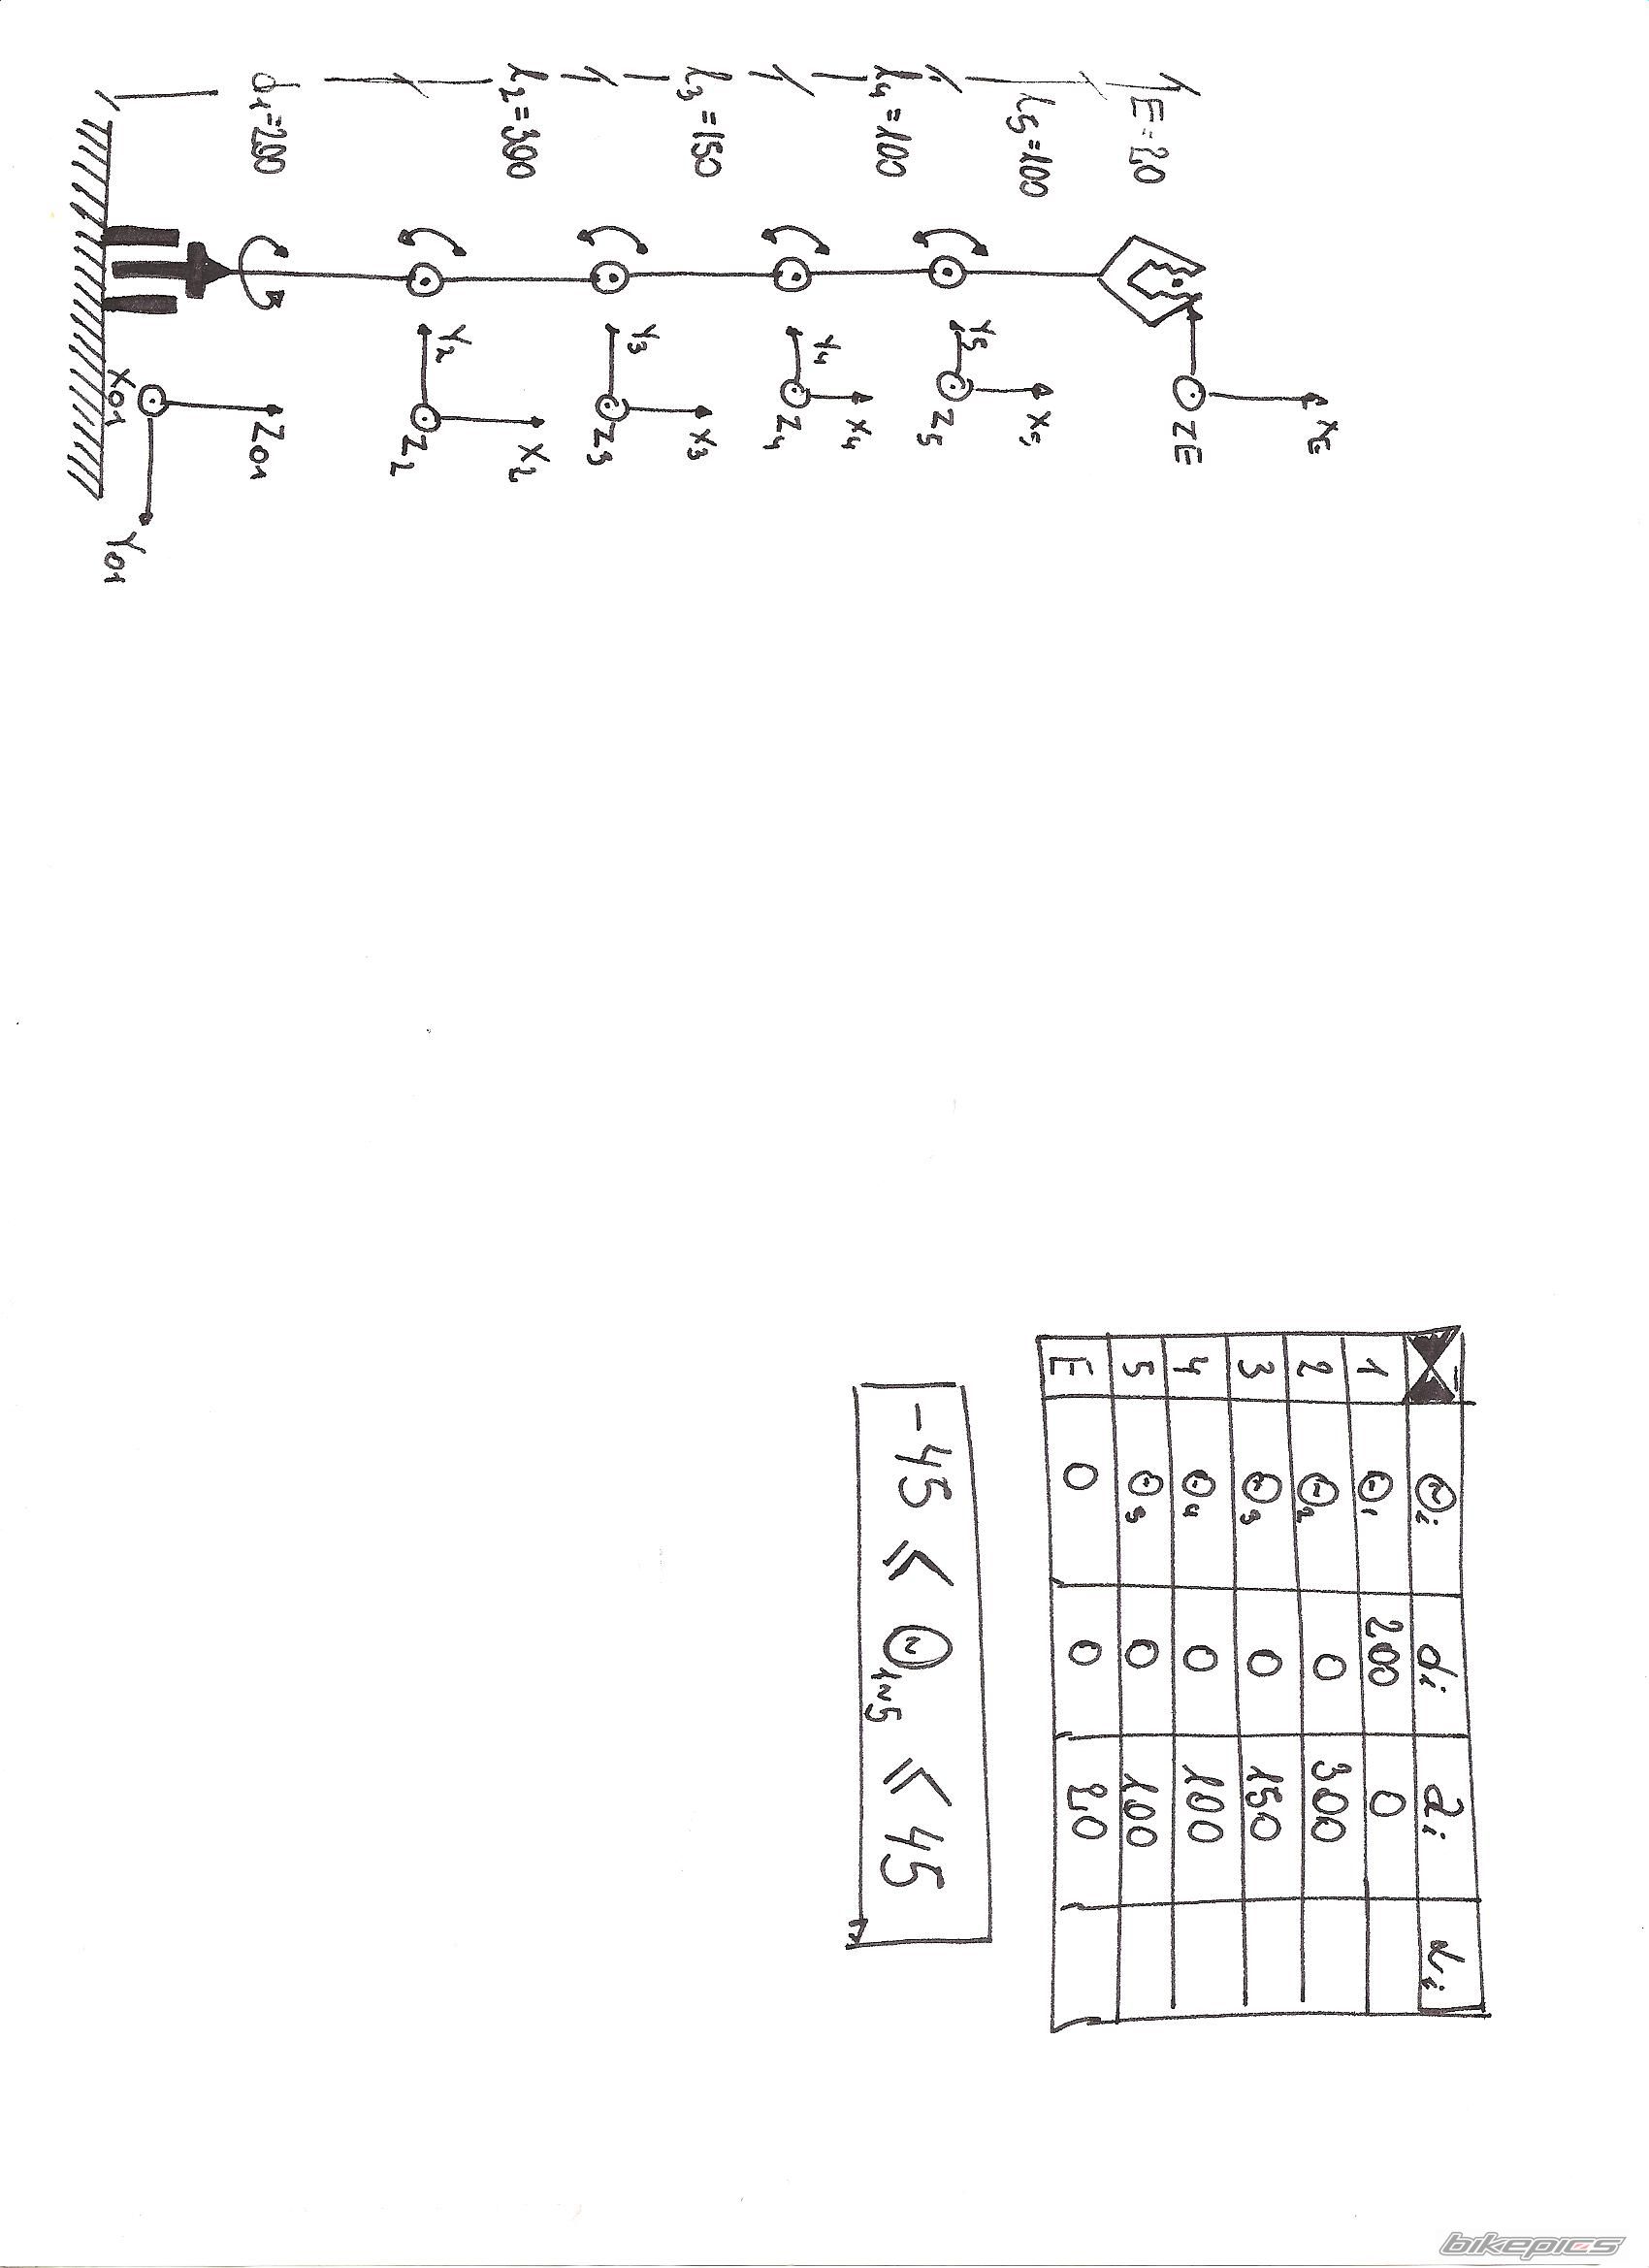 E=20
l5=100
l4=100
l3=150
l2=300
d1=200
XE
ZE
X5
Y5
Z5
X4
Y4
Z4
X3
Y3
Z3
X2
Y2
Z2
Z01
X01
Y01
i Θi di ai αi
1 Θ1 200 0
2 Θ2 0 300
3 Θ3 0 150
4 Θ4 0 100
5 Θ5 0 100
E 0 0 20
-45 ≤ Θ1~5 ≤ 45
bikepics